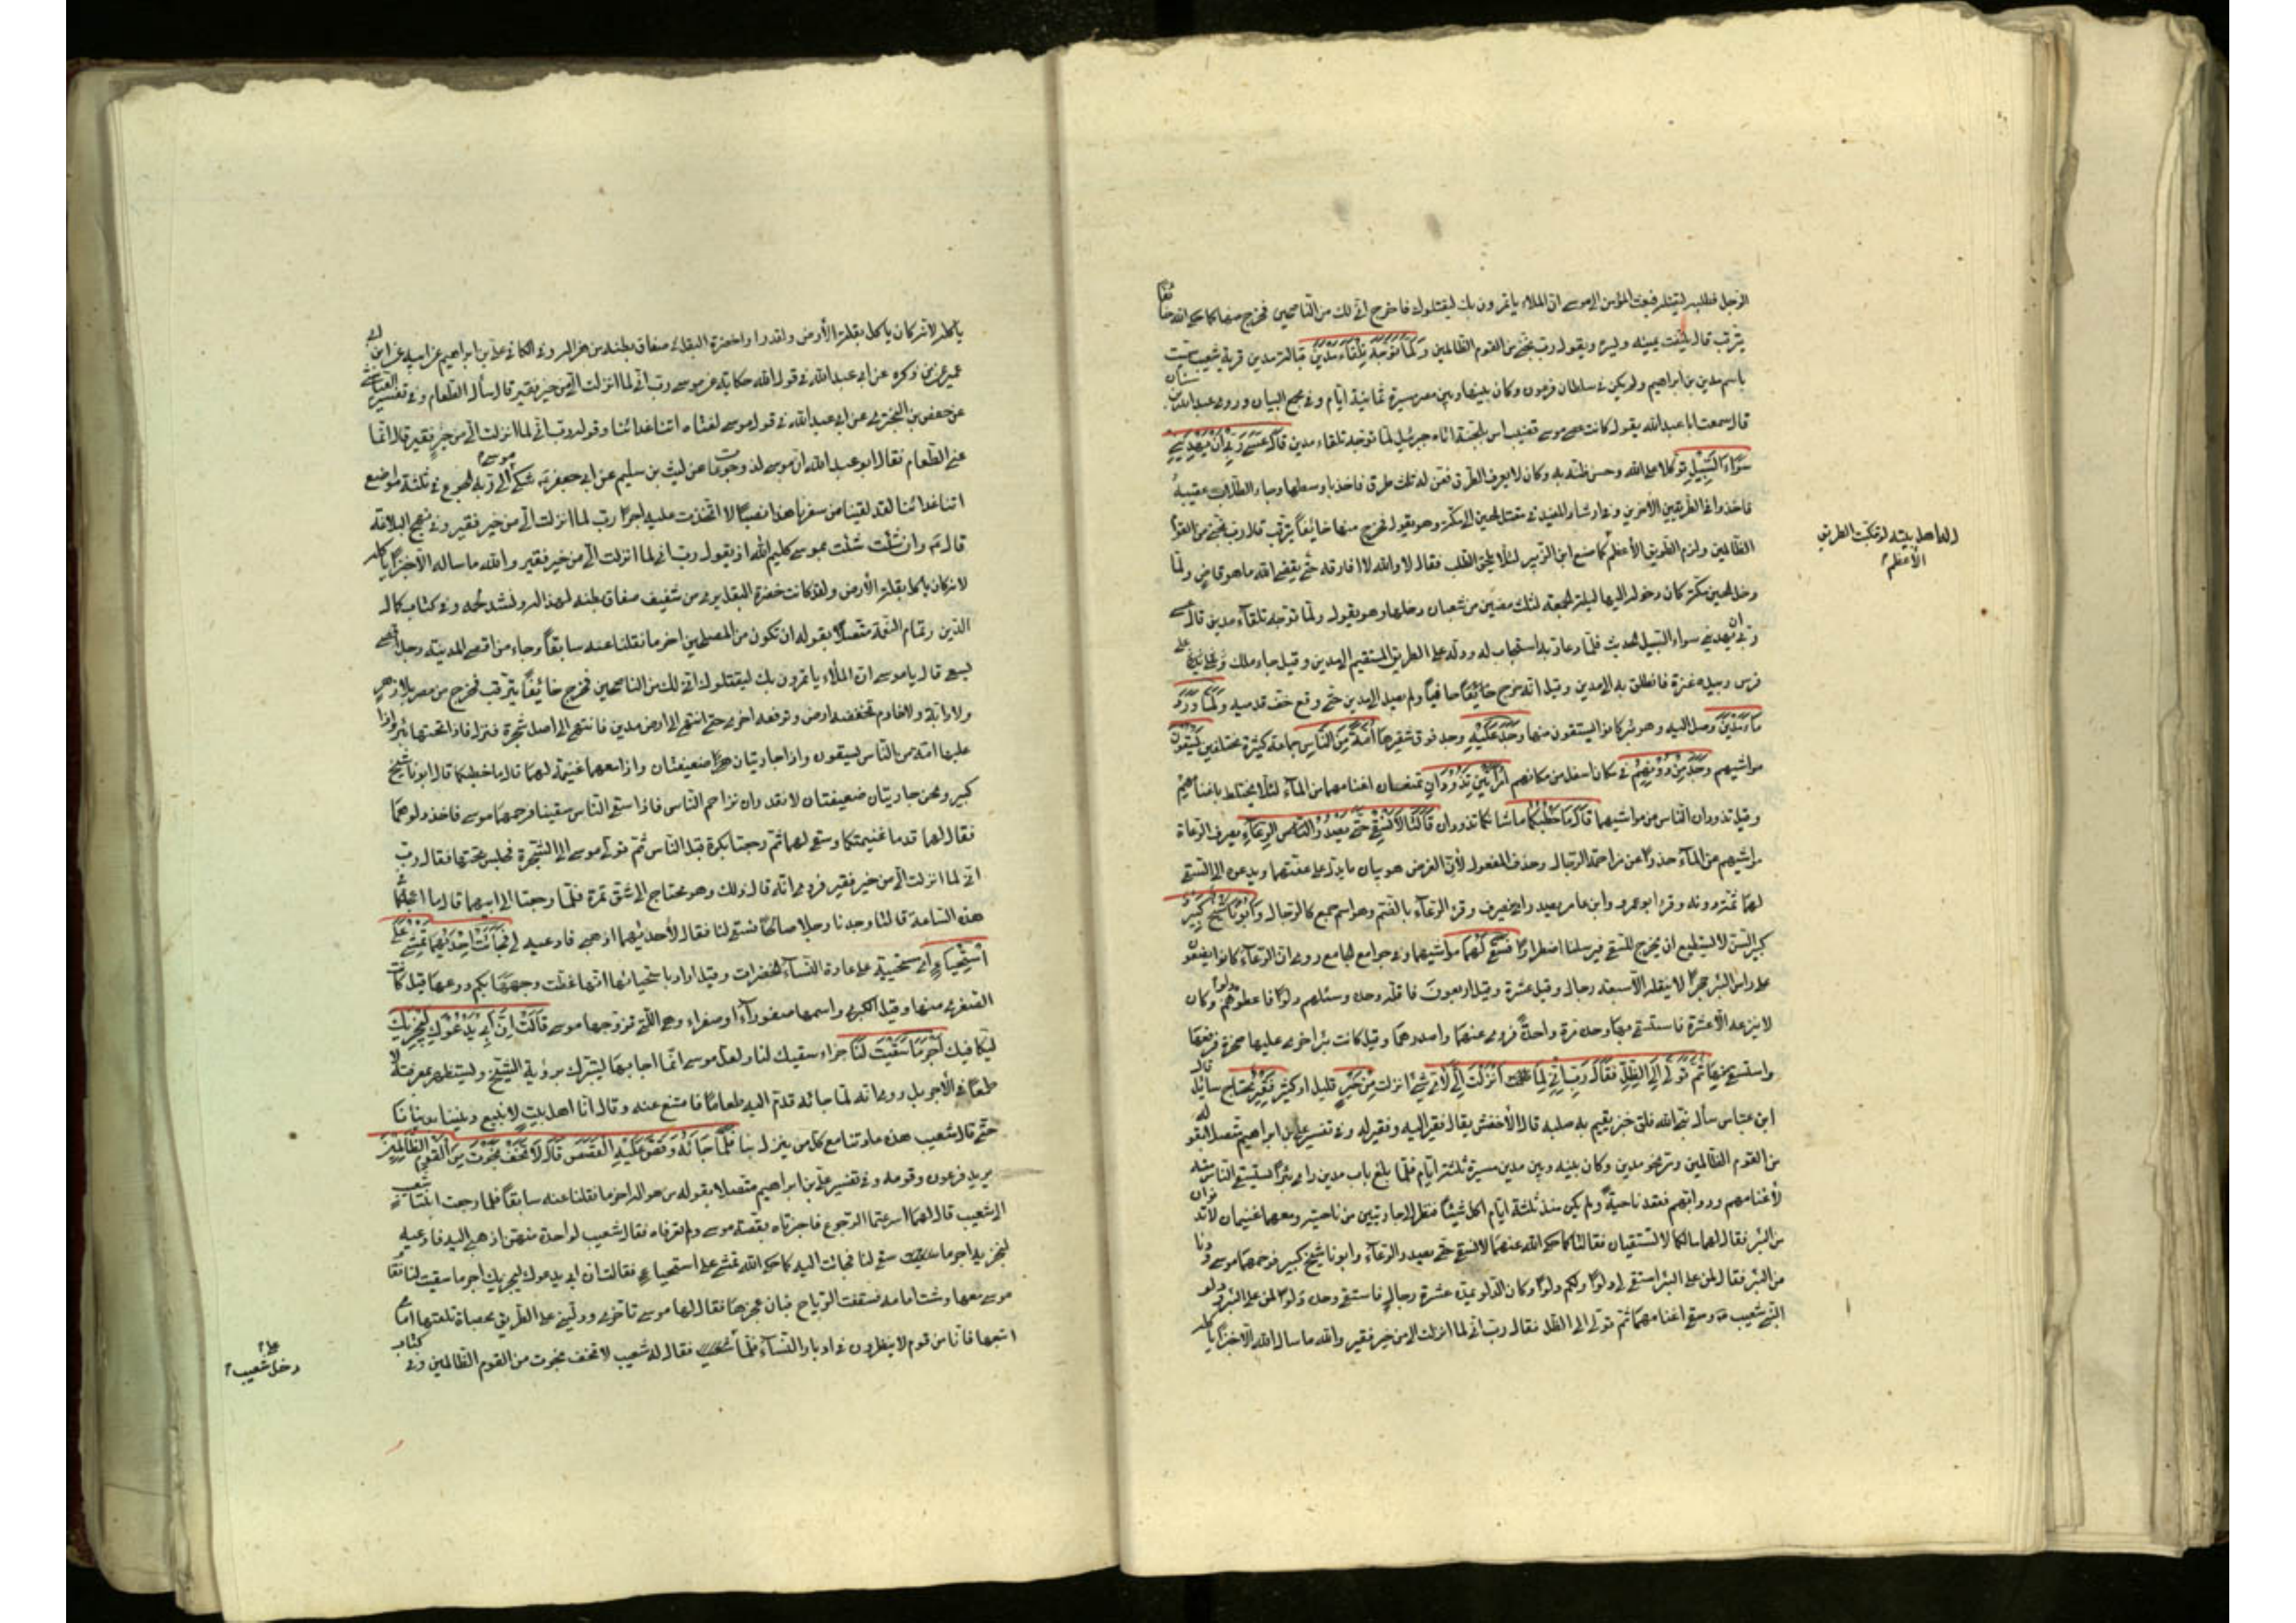 الرجل فطلبه ليقتله فبعث المؤمن الى موسى ان الملاء ياتمرون بك ليقتلوك فاخرج انى لك من الناصحين فخرج منها كما حكى الله خائفا
يترقب قال يلتفت يمينه ويسره ويقول رب نجنى من القوم الظالمين وَلَمَّا تَوَجَّهَ تِلْقَاءَ مَدْيَنَ قبالة مدين قرية شعيب سميت
باسم مدين بن ابراهيم ولم يكن فى سلطان فرعون وكان بينها وبين مصر مسيرة ثمانية ايام وفى مجمع البيان وروى عبد الله بن سنان
قال سمعت ابا عبد الله يقول كانت عصى موسى قضيب اس بالجنة اتاه جبرئيل لما توجه تلقاء مدين قَالَ عَسَى رَبِّى أَنْ يَهْدِيَنِى
سَوَاءَ السَّبِيلِ توكلا على الله وحسن ظنه به وكان لا يعرف الطرق فعن له ثلث طرق فاخذ باوسطها وجاء الطلاب عقيبه
فاخذوا فى الطريقين الآخرين وفى ارشاد المفيد فى مقتل الحسين الى مكة وهو يقول فخرج منها خائفاً يترقب قال رب نجنى من القوم
الظالمين ولزم الطريق الأعظم كما صنع ابن الزبير لئلا يلحق الطلب فقال لا والله لا افارقه حتى يقضى الله ما هو قاض ولما
له اهل بيته لو تنكبت الطريق
الأعظم
دخل الحسين مكة كان دخوله اليها ليلة الجمعة لثلث مضين من شعبان دخلها وهو يقول ولما توجه تلقاء مدين قال عسى
ربى ان يهدينى سواء السبيل الحديث فلما دعا ربه استجاب له ودله على الطريق المستقيم الى مدين وقيل جاء ملك على
فرس وبيده عنزة فانطلق به الى مدين وقيل انه خرج خائفاً حافياً ولم يصل الى مدين حتى وقع خف قدميه وَلَمَّا وَرَدَ
مَاءَ مَدْيَنَ وصل اليه وهو بئر كانوا يستقون منها وَجَدَ عَلَيْهِ وجد فوق شفيرها أُمَّةً مِنَ النَّاسِ جماعة كثيرة مختلفين يَسْقُونَ
مواشيهم وَوَجَدَ مِنْ دُونِهِمُ فى مكان اسفل من مكانهم امْرَأَتَيْنِ تَذُودَانِ تمنعان اغنامهما من الماء لئلا يختلط باغنامهم
وقيل تذودان الناس عن مواشيهما قَالَ مَا خَطْبُكُمَا ما شانكما تذودان قَالَتَا لَا نَسْقِى حَتَّى يُصْدِرَ الرِّعَاءُ يصرف الرعاة
مواشيهم عن الماء حذرا عن مزاحمة الرجال وحذف المفعول لأن الغرض هو بيان ما يدل على عفتهما ويدعوه الى السقى
لهما ثم دونه وقرء ابو عمرو وابن عامر يصدر اى ينصرف وقرئ الرعاء بالضم وهو اسم جمع كالرخال وَأَبُونَا شَيْخٌ كَبِيرٌ
كبير السن لا يستطيع ان يخرج للسقى فيرسلنا اضطرارا فَسَقَى لَهُمَا مواشيهما وفى جوامع الجامع روى ان الرعاء كانوا يضعون
على راس البئر حجرا لا ينقله الا سبعة رجال وقيل عشرة وقيل اربعون فاقله وحده وسئلهم دلوا فاعطوهم دلوا وكان
لا ينزعه الا عشرة فاستقى بها وحده مرة واحدة فروى غنمهما واصدرهما وقيل كانت بئرا اخرى عليها صخرة فرفعها
واستسقى منها ثُمَّ تَوَلَّى إِلَى الظِّلِّ فَقَالَ رَبِّ إِنِّى لِمَا أَنْزَلْتَ إِلَىَّ لأى شئ انزلت مِنْ خَيْرٍ قليل او كثير فَقِيرٌ محتاج سائل قال
ابن عباس سأل نبى الله فلق خبز يقيم به صلبه قال الأخفش يقال فقير اليه وفقير له وفى تفسير على بن ابراهيم متصلا بقوله
من القوم الظالمين ومر نحو مدين وكان بينه وبين مدين مسيرة ثلثة ايام فلما بلغ باب مدين راى بئرا يستسقى الناس منه
لأغنامهم ودوابهم فقعد ناحية ولم يكن منذ ثلثة ايام اكل شيئا فنظر الى جاريتين من ناحية ومعهما غنيمات لا تدنوان
من البئر فقال لهما مالكما لا تستقيان فقالتا كما حكى الله عنهما لا نسقى حتى يصدر الرعاء وابونا شيخ كبير فرحمهما موسى ودنا
من البئر فقال لمن على البئر استقى لى دلوا ولكم دلوا وكان الدلو يمده عشرة رجال فاستقى وحده دلوا لمن على البئر ودلوا
لبنتى شعيب وسقى اغنامهما ثم تولى الى الظل فقال رب انى لما انزلت الى من خير فقير والله ما سال الله الا خبزا ياكله
ياكله لانه كان ياكل بقلة الأرض ولقد راوا خضرة البقل فى صفاق بطنه من هزاله وفى الكافى على بن ابراهيم عن ابيه عن ابن ابى
عمير عمن ذكره عن ابى عبد الله فى قول الله حكاية عن موسى رب انى لما انزلت الى من خير فقير قال سأل الطعام وفى تفسير العياشى
عن حفص بن البخترى عن ابى عبد الله فى قول موسى لفتاه اتنا غدائنا وقوله رب انى لما انزلت الى من خير فقير قال انما
عنى الطعام فقال ابو عبد الله ان موسى لذو جوعات عن ليث بن سليم عن ابى جعفر شكى موسى الى ربه الجوع فى ثلثة مواضع
اتنا غدائنا لقد لقينا من سفرنا هذا نصبا لاتخذت عليه اجرا رب لما انزلت الى من خير فقير وفى نهج البلاغة
قال وان شئت ثنيت بموسى كليم الله اذ يقول رب انى لما انزلت الى من خير فقير والله ما ساله الا خبزا ياكله
لانه كان ياكل بقلة الأرض ولقد كانت خضرة البقل يرى من شفيف صفاق بطنه لهزاله وتشذب لحمه وفى كتاب كمال
الدين وتمام النعمة متصلا بقوله ان تكون من المصلحين اخر ما نقلنا عنه سابقاً وجاء من اقصى المدينة رجل
يسعى قال يا موسى ان الملأ ياتمرون بك ليقتلوك انى لك من الناصحين فخرج خائفاً يترقب فخرج من مصر بلا ظهر
ولا دابة ولا خادم تخفضه ارض وترفعه اخرى حتى انتهى الى ارض مدين فانتهى الى اصل شجرة فنزل فاذا تحتها بئر واذا
عليها امة من الناس يسقون واذا جاريتان ضعيفتان واذا معهما غنيمة لهما قال ما خطبكما قالتا ابونا شيخ
كبير ونحن جاريتان ضعيفتان لا نقدر ان نزاحم الناس فاذا سقى الناس سقينا فرحمهما موسى فاخذ دلوهما
فقال لهما قدما غنيمتكما وسقى لهما ثم رجعتا بكرة قبل الناس ثم تولى موسى الى الشجرة فجلس تحتها فقال رب
انى لما انزلت الى من خير فقير فروى انه قال ذلك وهو محتاج الى شق تمرة فلما رجعتا الى ابيهما قال ما اعجلكما
هذه الساعة قالتا وجدنا رجلا صالحا فسقى لنا فقال لأحديهما اذهبى فادعيه لى فَجَائَتْ إِحْدَيهُمَا تَمْشِى عَلَى
اسْتِحْيَاءٍ اى مستحيية على عادة النساء الخفرات وقيل اراد باستحيائها انها غطت وجهها بكم درعها قيل كانت
الصغرى منها وقيل الكبرى واسمها صفوراء او صفراء وهى التى تزوجها موسى قَالَتْ إِنَّ أَبِى يَدْعُوكَ لِيَجْزِيَكَ
ليكافيك أَجْرَ مَا سَقَيْتَ لَنَا جزاء سقيك لنا ولعل موسى انما اجابها ليتبرك برؤية الشيخ ويستظهر بمعرفته لا
طمعا فى الأجر بل روى انه لما جائه قدم اليه طعاما فامتنع عنه وقال انا اهل بيت لا نبيع ديننا بدنيانا
حتى قال شعيب هذه عادتنا مع كل من ينزل بنا فَلَمَّا جَائَهُ وَقَصَّ عَلَيْهِ الْقَصَصَ قَالَ لَا تَخَفْ نَجَوْتَ مِنَ الْقَوْمِ الظَّالِمِينَ
يريد فرعون وقومه وفى تفسير على بن ابراهيم متصلا بقوله من هزاله اخر ما نقلنا عنه سابقاً فلما رجعت ابنتا شعيب
الى شعيب قال لهما اسرعتما الرجوع فاخبرتاه بقصة موسى ولم تعرفاه فقال شعيب لواحدة منهن اذهبى اليه فادعيه
لنجزيه اجر ما سقى لنا فجائت اليه كما حكى الله تمشى على استحياء فقالت ان ابى يدعوك ليجزيك اجر ما سقيت لنا فقام
موسى معها ومشت امامه فسفقت الرياح فبان عجزها فقال لها موسى تاخرى ودلينى على الطريق بحصاة تلقيها امامى
اتبعها فانا من قوم لا ينظرون فى ادبار النساء فلما فقال له شعيب لا تخف نجوت من القوم الظالمين وفى كتاب
دخل على
شعيب